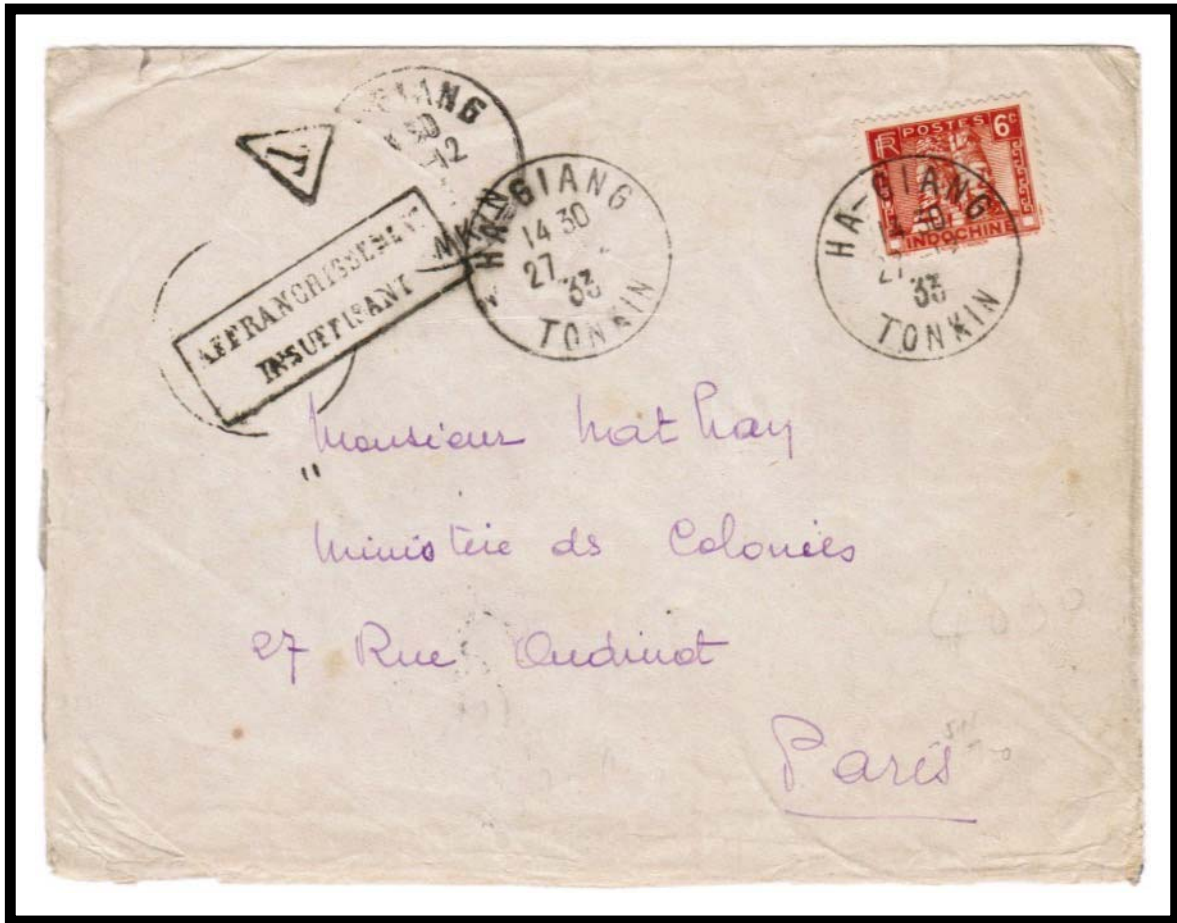 T
GIANG
30
12
AFFRANCHISSEMENT
INSUFFISANT
HA-GIANG
14 30
27
33
TONKIN
RF POSTES 6c
INDOCHINE
HA-GIANG
14 30
27 12
33
TONKIN
Monsieur Mathay
Ministère ds Colonies
27 Rue Oudinot
Paris